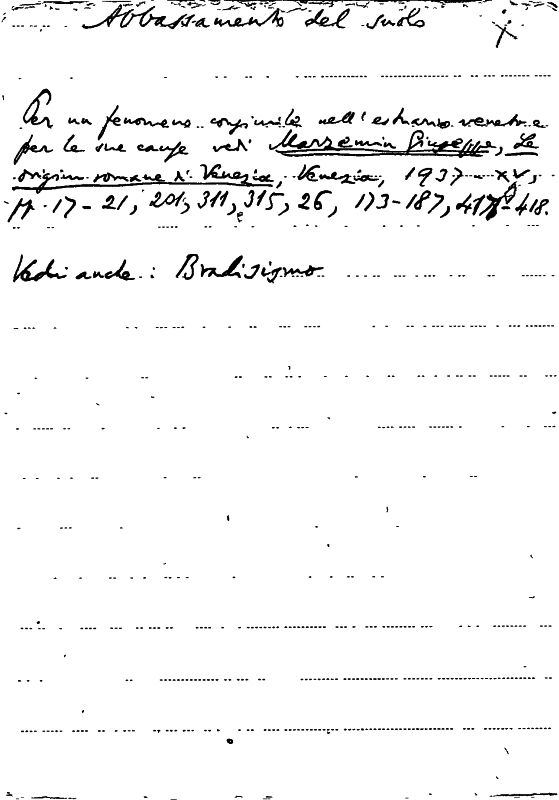 Abbassamento del suolo
Per un fenomeno consimile nell'estuario veneto e
per le sue cause vedi Marzemin Giuseppe, Le
origini romane di Venezia, Venezia, 1937-XV,
pp. 17-21, 201, 311, 315, 26, 173-187, 417-418.
Vedi anche: Bradisismo